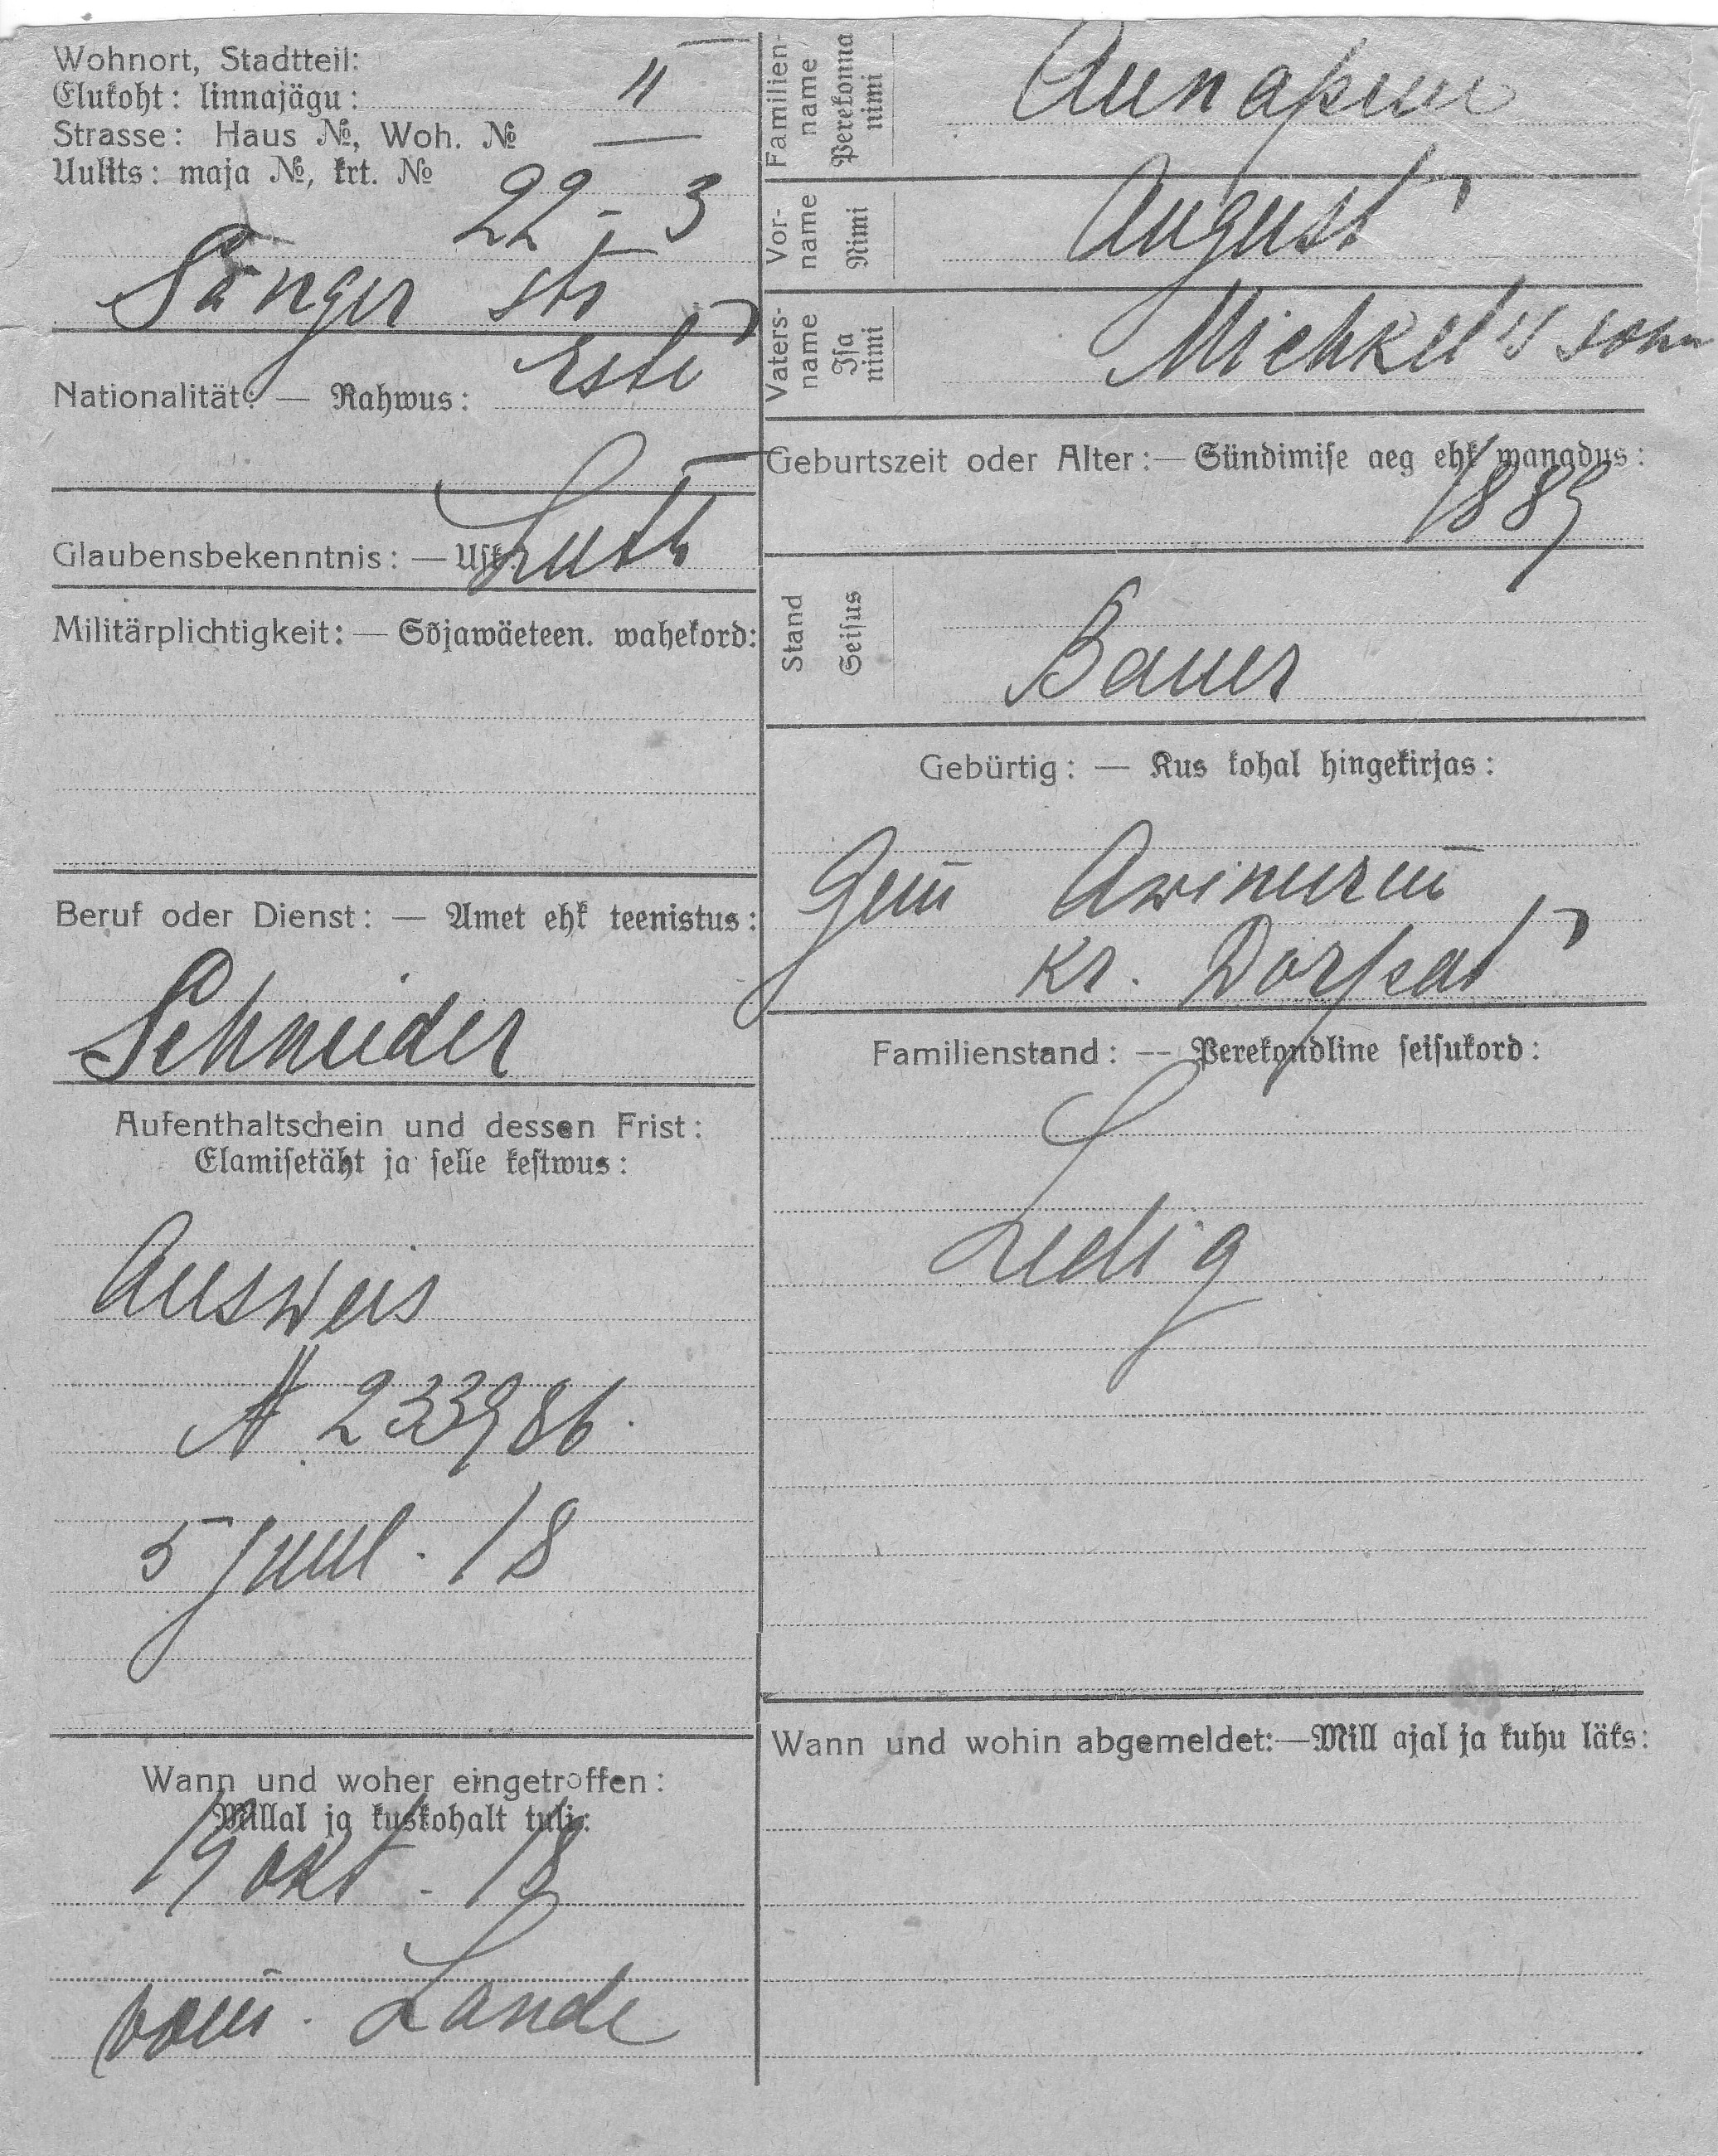 Wohnort, Stadtteil:
Elukoht: linnajägu: II
Strasse: Haus №, Woh. №
Uulits: maja №, krt. №
22 - 3
Sänger str
Nationalität: — Rahwus: Este
Glaubensbekenntnis: — Usk: Luth
Militärplichtigkeit: — Sõjawäeteen. wahekord:
Beruf oder Dienst: — Amet ehk teenistus:
Schneider
Aufenthaltschein und dessen Frist:
Elamisetäht ja selle kestwus:
Ausweis
A 233986.
5 Juul. 18
Wann und woher eingetroffen:
Millal ja kuskohalt tuli:
19 okt. 18
vom. Lande
Familien-
name
Perekonna
nimi
Vor-
name
Nimi
August
Vaters-
name
Isa
nimi
Michkel's sohn
Geburtszeit oder Alter: — Sündimise aeg ehk wanadus:
1889
Stand
Seisus
Bauer
Gebürtig: — Kus kohal hingekirjas:
Gem Awinurm
Kr. Dorpat
Familienstand: — Perekondline seisukord:
Ledig
Wann und wohin abgemeldet: — Mill ajal ja kuhu läks: